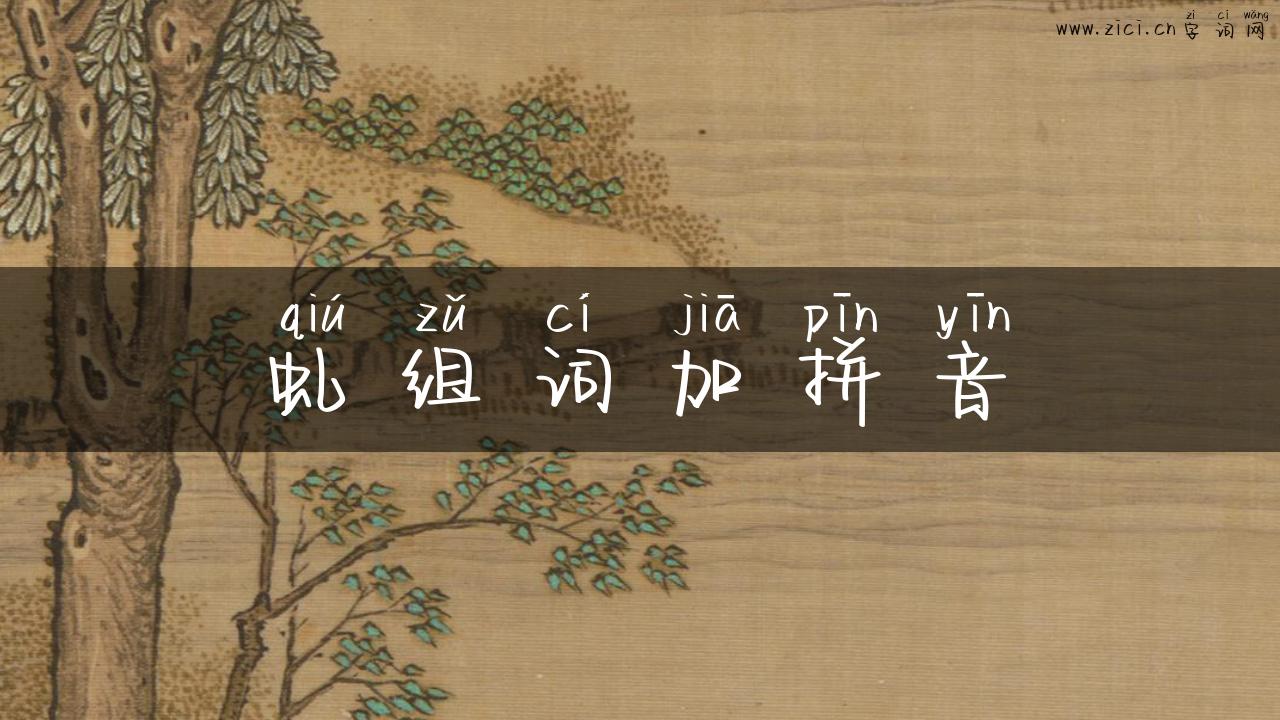 zì cí wǎng
www.zici.cn 字词网
qiú zǔ cí jiā pīn yīn
虬组词加拼音